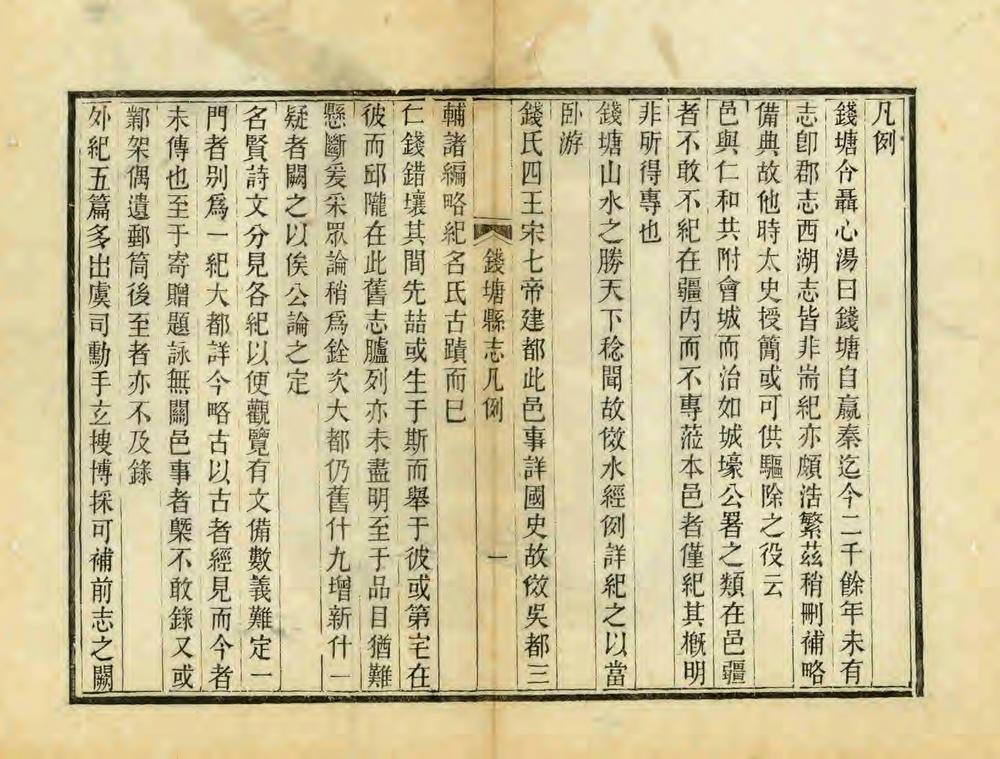 凡例
錢塘令聶心湯曰錢塘自嬴秦迄今二千餘年未有
志卽郡志西湖志皆非耑紀亦頗浩繁茲稍刪補略
備典故他時太史授簡或可供驅除之役云
邑與仁和共附會城而治如城壕公署之類在邑疆
者不敢不紀在疆内而不專蒞本邑者僅紀其槪明
非所得專也
錢塘山水之勝天下稔聞故倣水經例詳紀之以當
卧游
錢氏四王宋七帝建都此邑事詳國史故倣吳都三
錢塘縣志凡例 一
輔諸編略紀名氏古蹟而巳
仁錢錯壤其間先喆或生于斯而舉于彼或第宅在
彼而邱隴在此舊志臚列亦未盡明至于品目猶難
懸斷爰采眾論稍爲銓次大都仍舊什九增新什一
疑者闕之以俟公論之定
名賢詩文分見各紀以便觀覽有文備數義難定一
門者别爲一紀大都詳今略古以古者經見而今者
未傳也至于寄贈題詠無關邑事者槩不敢錄又或
鄴架偶遺郵筒後至者亦不及錄
外紀五篇多出虞司勳手玄搜博採可補前志之闕